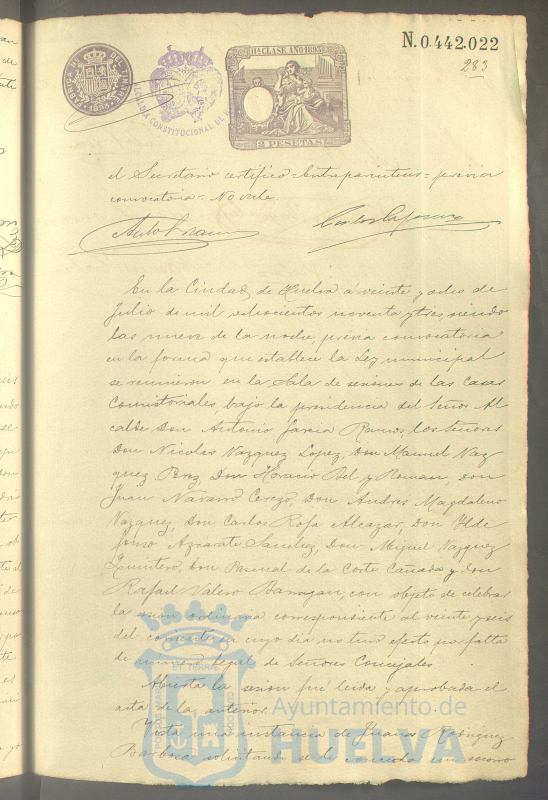 N.0.442.022
283
11ª CLASE AÑO 1893
ALCALDIA CONSTITUCIONAL DE
2 PESETAS
el Secretario certifico = Entreparéntesis = previa
convocatoria = No vale.
En la Ciudad de Huelva á veinte y ocho de
Julio de mil ochocientos noventa y tres siendo
las nueve de la noche, prévia convocatoria
en la forma que establece la Ley municipal
se reunieron en la Sala de sesiones de las Casas
Consistoriales, bajo la presidencia del Señor Al
calde Don Antonio Garcia Ramos, los Señores
Don Nicolas Vazquez Lopez, Don Manuel Vaz
quez Perez, Don Horacio Bel y Roman, Don
Juan Navarro Cerezo, Don Andres Magdaleno
Vazquez, Don Carlos Rofa Alcazar, Don Ylde
fonso Azcarate Sanchez, Don Miguel Vazquez
Quintero, Don Pascual de la Corte Cañada y Don
Rafael Valero Barragan, con objeto de celebrar
la sesion ordinaria correspondiente al veinte y seis
del corriente en cuyo dia no tuvo efecto por falta
de número legal de Señores Concejales.
Abierta la sesion fué leida y aprobada el
acta de la anterior.
Vista una instancia de Juana Rodriguez
Barbosa solicitando se le conceda un socorro
Ayuntamiento de
HUELVA